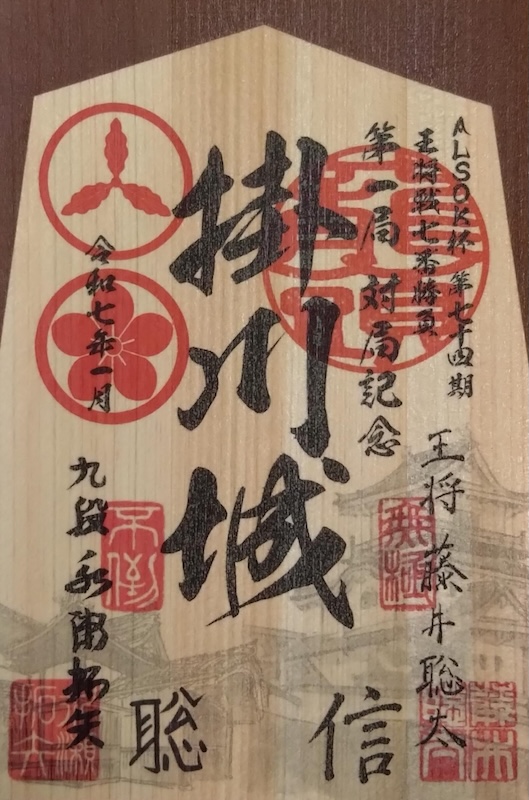 ALSOK杯 第七十四期
王将戦七番勝負
第一局 対局記念
王将 藤井聡太
無極
信
掛川城
聡
不倒
令和七年一月
九段 永瀬拓矢